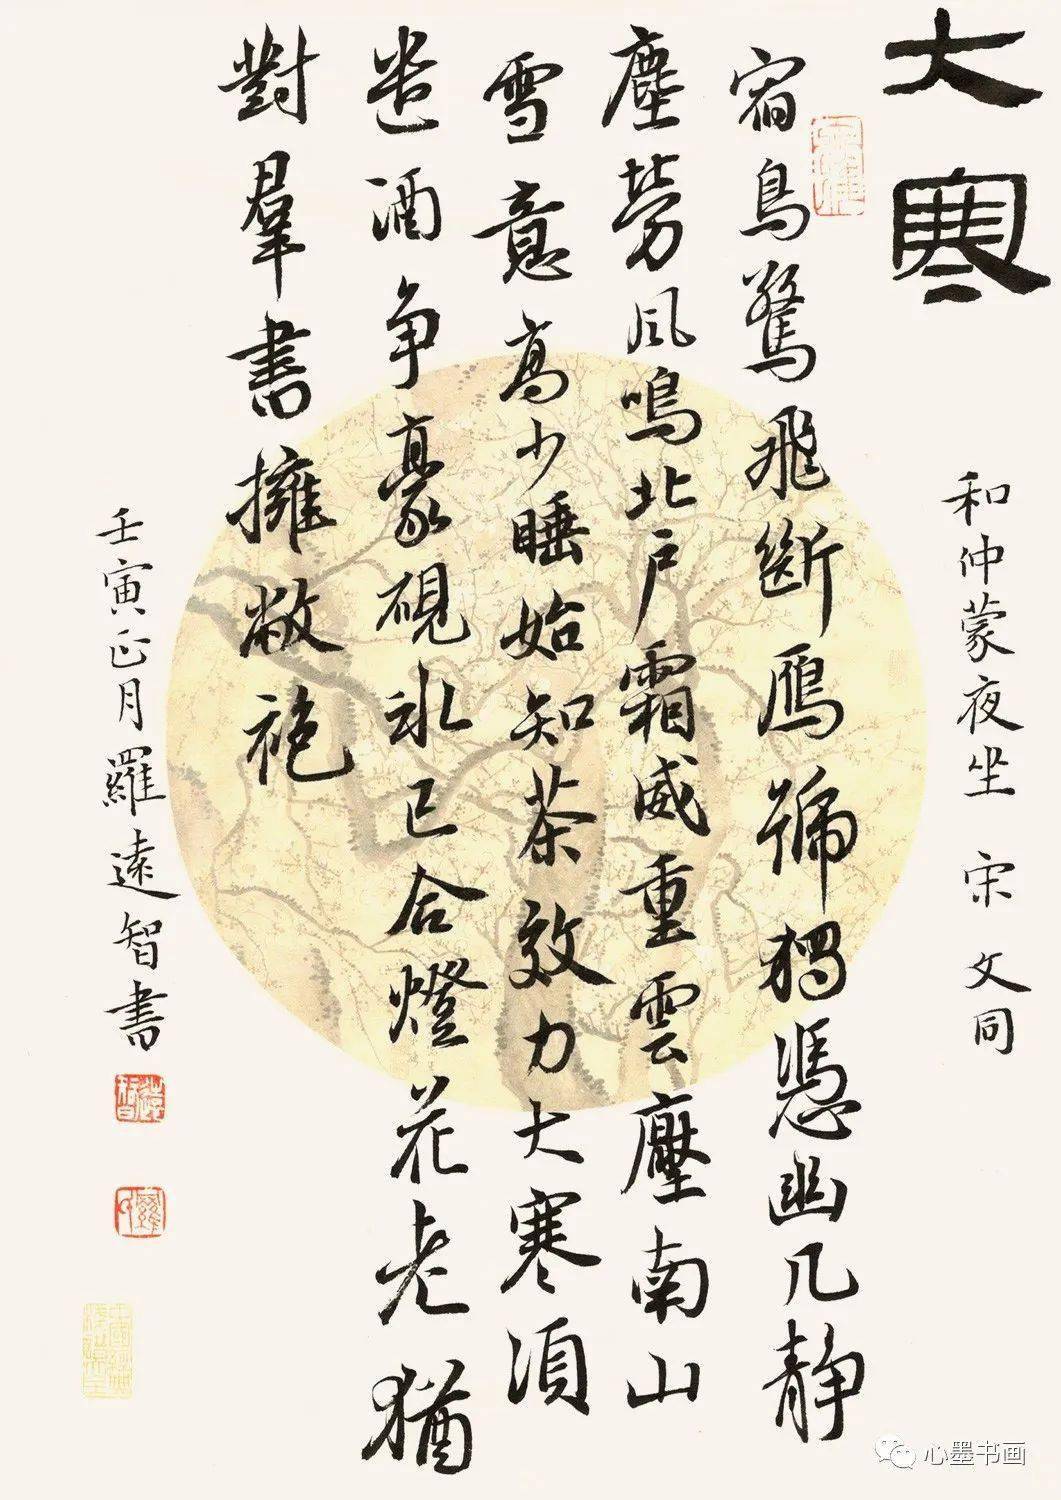 大寒
和仲蒙夜坐 宋 文同
宿鳥驚飛斷鴈號獨憑幽几静
塵勞風鳴北戶霜威重雲壓南山
雪意高少睡始知茶效力大寒須
遣酒争豪硯冰已合燈花老猶
對羣書擁敝袍
壬寅正月羅遠智書
遠智
心墨书画